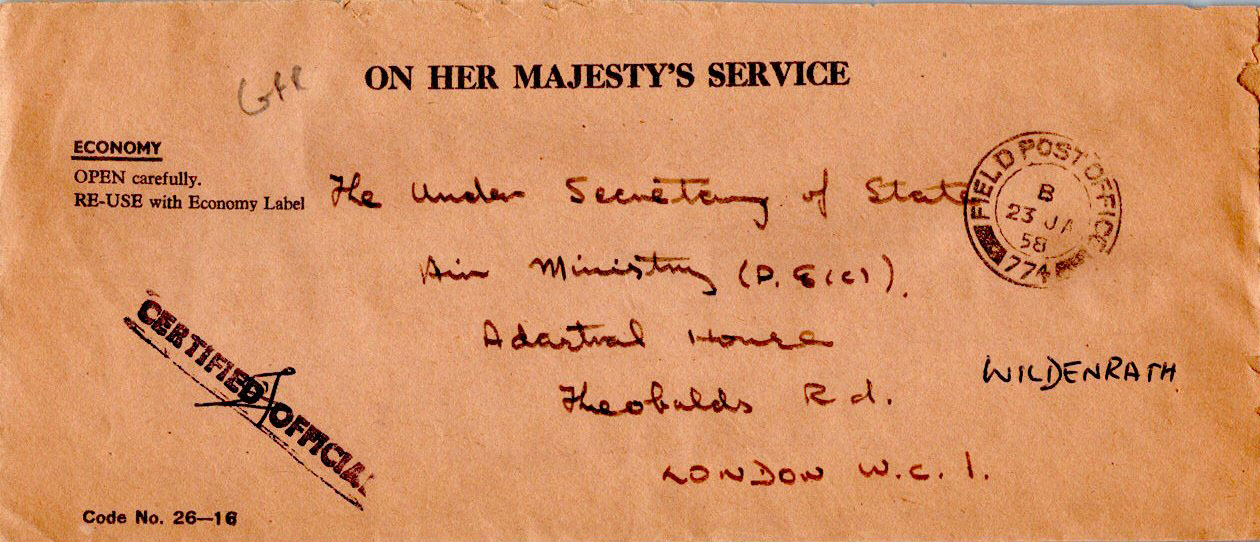 ON HER MAJESTY'S SERVICE
GFR
ECONOMY
OPEN carefully.
RE-USE with Economy Label
The Under Secretary of State
Air Ministry
Adastral House
Theobalds Rd.
LONDON W.C.1.
FIELD POST OFFICE
B
23 JA
58
774
WILDENRATH
CERTIFIED OFFICIAL
Code No. 26—16